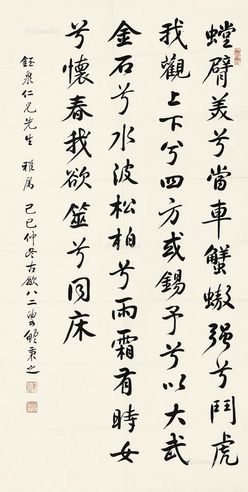 螳臂美兮當車蟹螯强兮鬥虎
我觀上下兮四方或錫予兮以大武
金石兮水波松柏兮雨霜有時女
兮懷春我欲筮兮同床
鈺泉仁兄先生 雅屬 己巳仲冬古歙八二叟鮑秉之